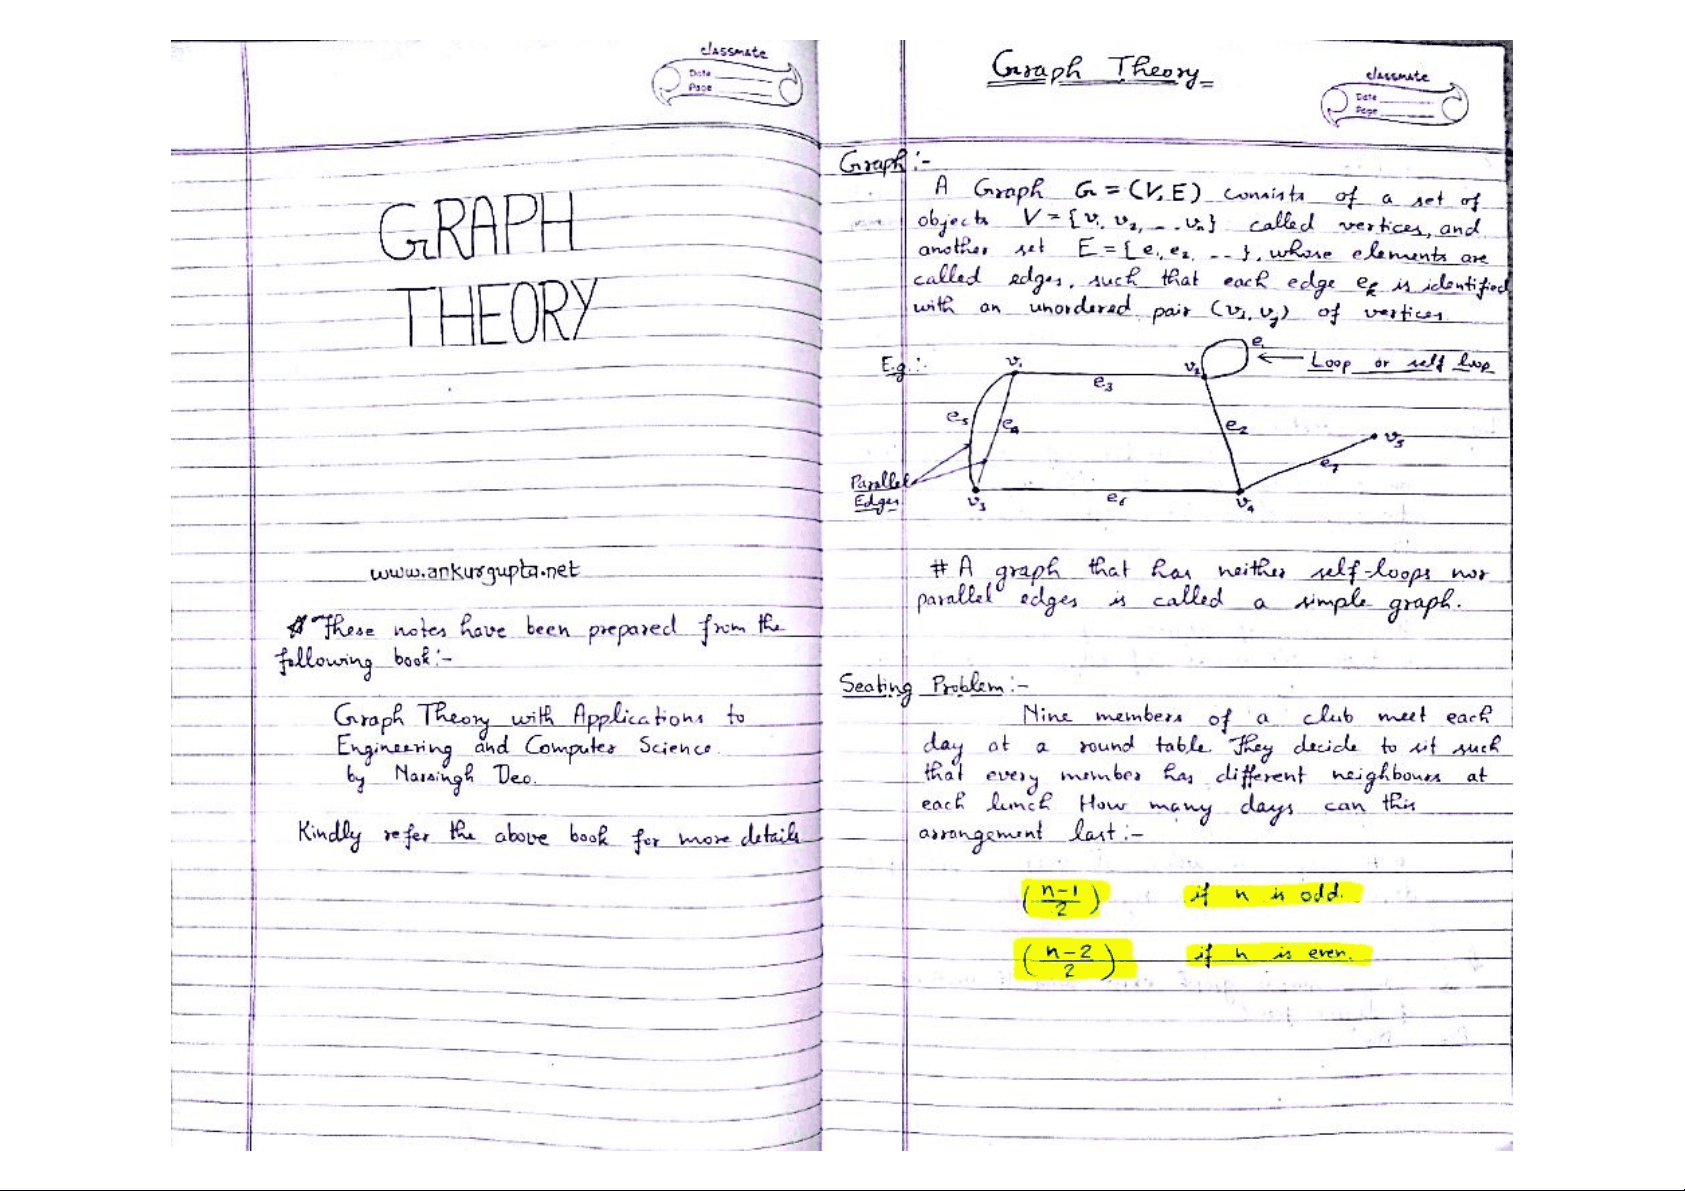 classmate
Date
Page
GRAPH
THEORY
www.ankurgupta.net
# These notes have been prepared from the
following book:-
Graph Theory with Applications to
Engineering and Computer Science.
by Narsingh Deo.
Kindly refer the above book for more details
Graph Theory
classmate
Date
Page
Graph:-
A Graph G = (V, E) consists of a set of
objects V = { v₁ v₂, ... vₙ} called vertices, and
another set E = { e₁ e₂, ... }, whose elements are
called edges, such that each edge eₖ is identified
with an unordered pair (vᵢ, vⱼ) of vertices.
E.g.:-
v₁
e₃
v₂
e₁
← Loop or self loop
e₅
e₄
e₂
v₅
e₇
Parallel
Edges
v₃
e₆
v₄
# A graph that has neither self-loops nor
parallel edges is called a simple graph.
Seating Problem:-
Nine members of a club meet each
day at a round table. They decide to sit such
that every member has different neighbours at
each lunch How many days can this
arrangement last:-
(n-1/2) if n is odd.
(n-2/2) if n is even.